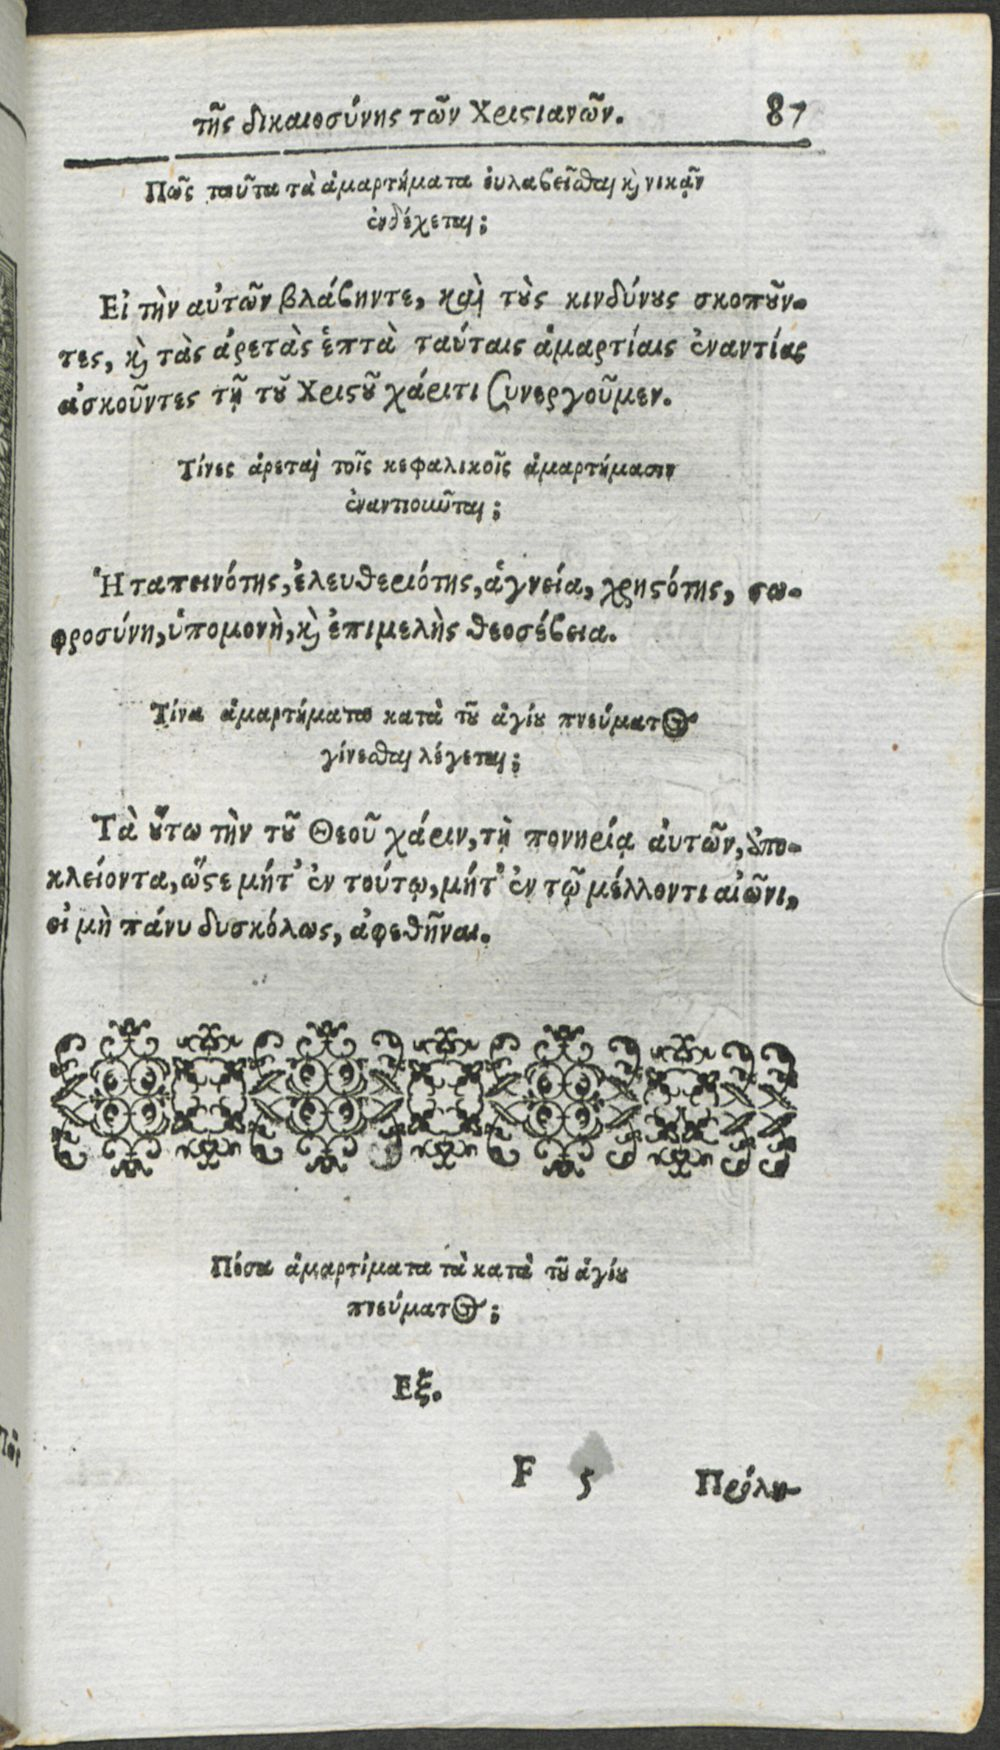 τῆς δικαιοσύνης τῶν Χριϛιανῶν. 87
Πῶς ταῦτα τὰ ἁμαρτήματα ἐυλαβεῖσθαι κỳ νικᾷν
ἐνδέχεται;
Εἰ τὴν αὐτῶν βλάβηντε, καὶ τὺς κινδύνȣς σκοπȣ͂ν-
τες, κỳ τὰς ἀρετὰς ἑπτὰ ταύταις ἁμαρτίαις ἐναντίας
ἀσκοῦντες τῇ τȣ͂ Χριϛȣ͂ χάριτι συνεργοῦμεν.
Τίνες ἀρεταὶ τοῖς κεφαλικοῖς ἁμαρτήμασιν
ἐναντιοιῶται;
Ἡ ταπεινότης, ἐλευθεριότης, ἁγνεία, χρηϛότης, σω-
φροσύνη, ὑπομονὴ, κỳ ἐπιμελὴς θεοσέβεια.
Τίνα ἁμαρτήματα κατὰ τȣ͂ ἁγίȣ πνεύματος
γίνεσθαι λέγεται;
Τὰ ȣ̔́τω τὴν τȣ͂ Θεοῦ χάριν, τῇ πονηρίᾳ ἀυτῶν, ἀπο-
κλείοντα, ὥϛε μήτ' ἐν τούτῳ, μήτ' ἐν τῷ μέλλοντι αἰῶνι,
εἰ μὴ πάνυ δυσκόλως, ἀφεθῆναι.
Πόσα ἁμαρτίματα τὰ κατὰ τȣ͂ ἁγίȣ
πνεύματος;
Εξ.
F 5 Πρόλη-